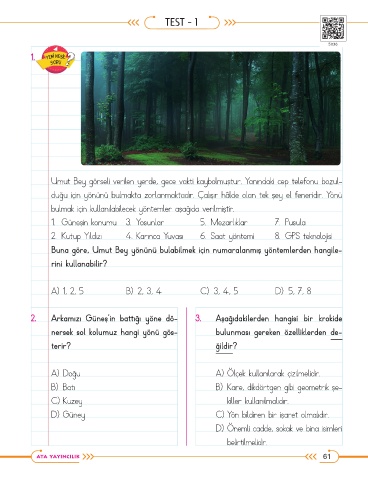 TEST - 1
1.
YENİ NESİL
SORU
Umut Bey görseli verilen yerde, gece vakti kaybolmuştur. Yanındaki cep telefonu bozul-
duğu için yönünü bulmakta zorlanmaktadır. Çalışır hâlde olan tek şey el feneridir. Yönü
bulmak için kullanılabilecek yöntemler aşağıda verilmiştir.
1. Güneşin konumu 3. Yosunlar 5. Mezarlıklar 7. Pusula
2. Kutup Yıldızı 4. Karınca Yuvası 6. Saat yöntemi 8. GPS teknolojisi
Buna göre, Umut Bey yönünü bulabilmek için numaralanmış yöntemlerden hangile-
rini kullanabilir?
A) 1, 2, 5 B) 2, 3, 4 C) 3, 4, 5 D) 5, 7, 8
2. Arkamızı Güneş'in battığı yöne dö-
nersek sol kolumuz hangi yönü gös-
terir?
A) Doğu
B) Batı
C) Kuzey
D) Güney
3. Aşağıdakilerden hangisi bir krokide
bulunması gereken özelliklerden de-
ğildir?
A) Ölçek kullanılarak çizilmelidir.
B) Kare, dikdörtgen gibi geometrik şe-
killer kullanılmalıdır.
C) Yön bildiren bir işaret olmalıdır.
D) Önemli cadde, sokak ve bina isimleri
belirtilmelidir.
ATA YAYINCILIK
61